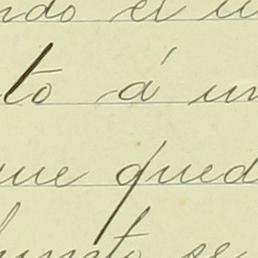 ndo el u
to á un
ue qued
junto se